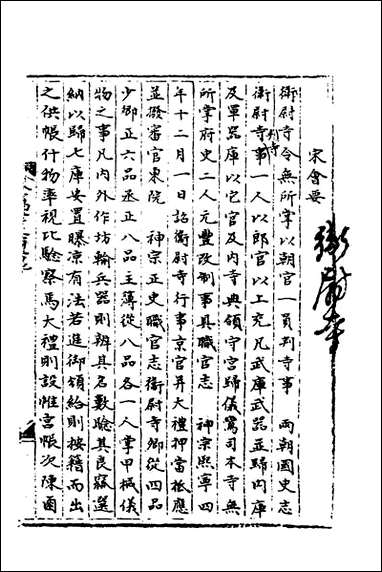 宋會要
衛尉寺
衛尉寺令無所掌以朝官一員判寺事　兩朝國史志
衛尉寺判寺事一人以郎官以上充凡武庫武器並歸內庫
及軍器庫以它官及內寺典領守宮歸儀鸞司本寺無
所掌府史二人元豐改制事具職官志　神宗熙寧四
年十二月一日詔衛尉寺行事京官并大禮押當祗應
並撥審官東院　神宗正史職官志衛尉寺卿從四品
少卿正六品丞正八品主薄從八品各一人掌甲械儀
物之事凡內外作坊輸兵器則辨其名數驗其良窳選
納以歸七庫安置曝凉有法若進御頒給則按籍而出
之供帳什物率視此驗察焉大禮則設帷宮帳次陳鹵